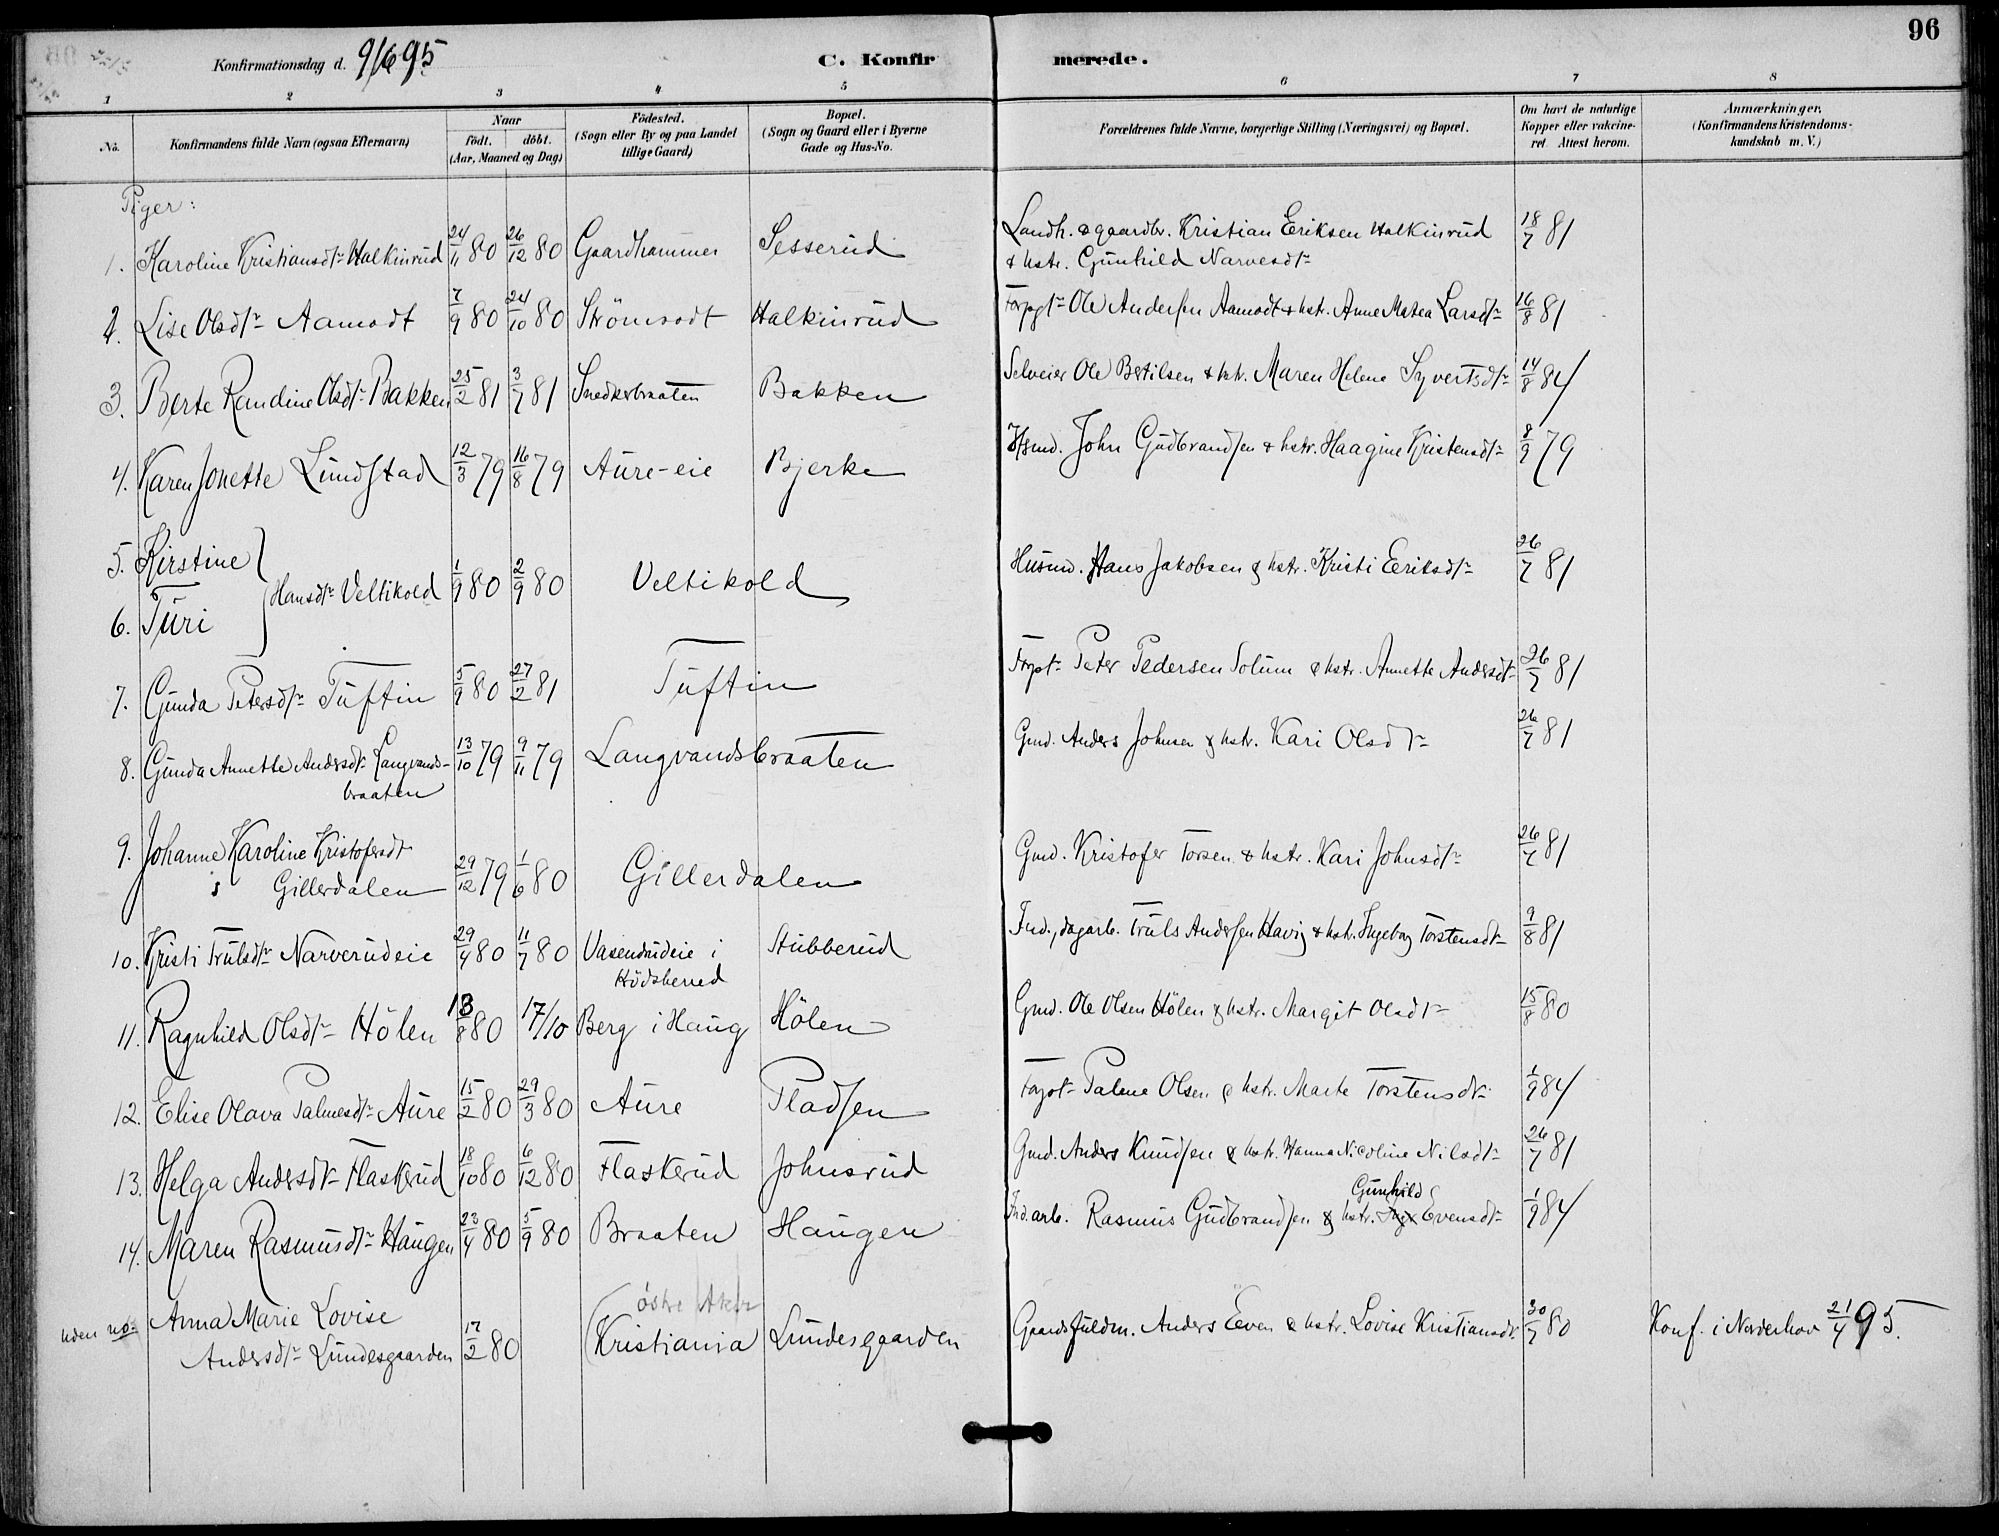 96
Konfirmationsdag d. 9/6 95
C. Konfirmerede.
1 2 3 4 5 6 7 8
No.
Konfirmandens fulde Navn (ogsaa Efternavn)
Naar
födt. döbt.
(Aar, Maaned og Dag)
Födested.
(Sogn eller By og paa Landet
tillige Gaard)
Bopæl.
(Sogn og Gaard eller i Byerne
Gade og Hus-No.
Forældrenes fulde Navne, borgerlige Stilling (Næringsvei) og Bopæl.
Om havt de naturlige
Kopper eller vakcine-
ret. Attest herom.
Anmærkninger.
(Konfirmandens Kristendoms-
kundskab m. V.)
Piger:
1. Karoline Kristiansdtr Halkinrud 24/11 80 26/12 80 Gaardhammer Sesserud Landh. & gaardbr. Kristian Eriksen Halkinrud 18/7 81
& hstr. Gunhild Narvesdtr
2. Lise Olsdtr Aamodt 7/9 80 24/10 80 Strömsodt Halkinrud Forpgtr Ole Andersen Aamodt & hstr. Anne Matea Larsdtr 16/8 81
3. Berte Randine Olsdtr Bakken 25/2 81 3/7 81 Snedkerbraaten Bakken Selveier Ole Bertilsen & hstr. Maren Helene Syvertsdtr 14/8 84
4. Karen Jonette Lundstad 12/3 79 16/8 79 Aure-eie Bjerke Hsmd. John Gudbrandsen & hstr. Haagine Kristensdtr 8/9 79
5. Kirstine
Hansdtr Veltikold 1/9 80 2/9 80 Veltikold Husmd. Hans Jakobsen & hstr. Kristi Eeriksdtr 26/7 81
6. Turi
7. Gunda Petersdtr Tuftin 5/9 80 27/2 81 Tuftin Forptr Peter Pedersen Solum & hstr. Annette Andersdtr 26/7 81
8. Gunda Annette Andersdtr Langvands- 13/10 79 9/11 79 Langvandsbraaten Gmd. Anders Johnsen & hstr. Kari Olsdtr 26/7 81
braaten
9. Johanne Karoline Kristofersdtr
Gillerdalen 29/12 79 1/6 80 Gillerdalen Gmd. Kristofer Torsen & hstr. Kari Johnsdtr 26/7 81
10. Kristi Trulsdtr Narverudeie 29/4 80 11/7 80 Vasenrudeie i Stubberud Ind., dagarb. Truls Andersen Havig & hstr. Ingeborg Torstensdtr 9/8 81
Hödsherred
11. Ragnhild Olsdtr Hölen 13/8 80 17/10 Berg i Haug Hölen Gmd. Ole Olsen Hölen & hstr. Margit Olsdtr 15/8 80
12. Elise Olava Palmesdtr Aure 15/2 80 29/3 80 Aure Pladsen Forptr Palme Olsen & hstr. Marte Torstensdtr 1/9 84
13. Helga Andersdtr Flaskerud 18/10 80 6/12 80 Flaskerud Johnsrud Gmd. Anders Knudsen & hstr. Hanna Nicoline Nilsdtr 26/7 81
Gunhild
14. Maren Rasmusdtr Haugen 23/4 80 5/9 80 Braaten Haugen Ind. arb. Rasmus Gudbrandsen & hstr. Evensdtr 1/9 84
östre Aker
uden no. Anna Marie Lovise
Andersdtr Lundesgaarden 17/2 80 (Kristiania Lundesgaarden Gaardsfuldm. Anders Even & hstr. Lovise Kristiansdtr 30/7 80 Konf. i Norderhov 21/4 95.